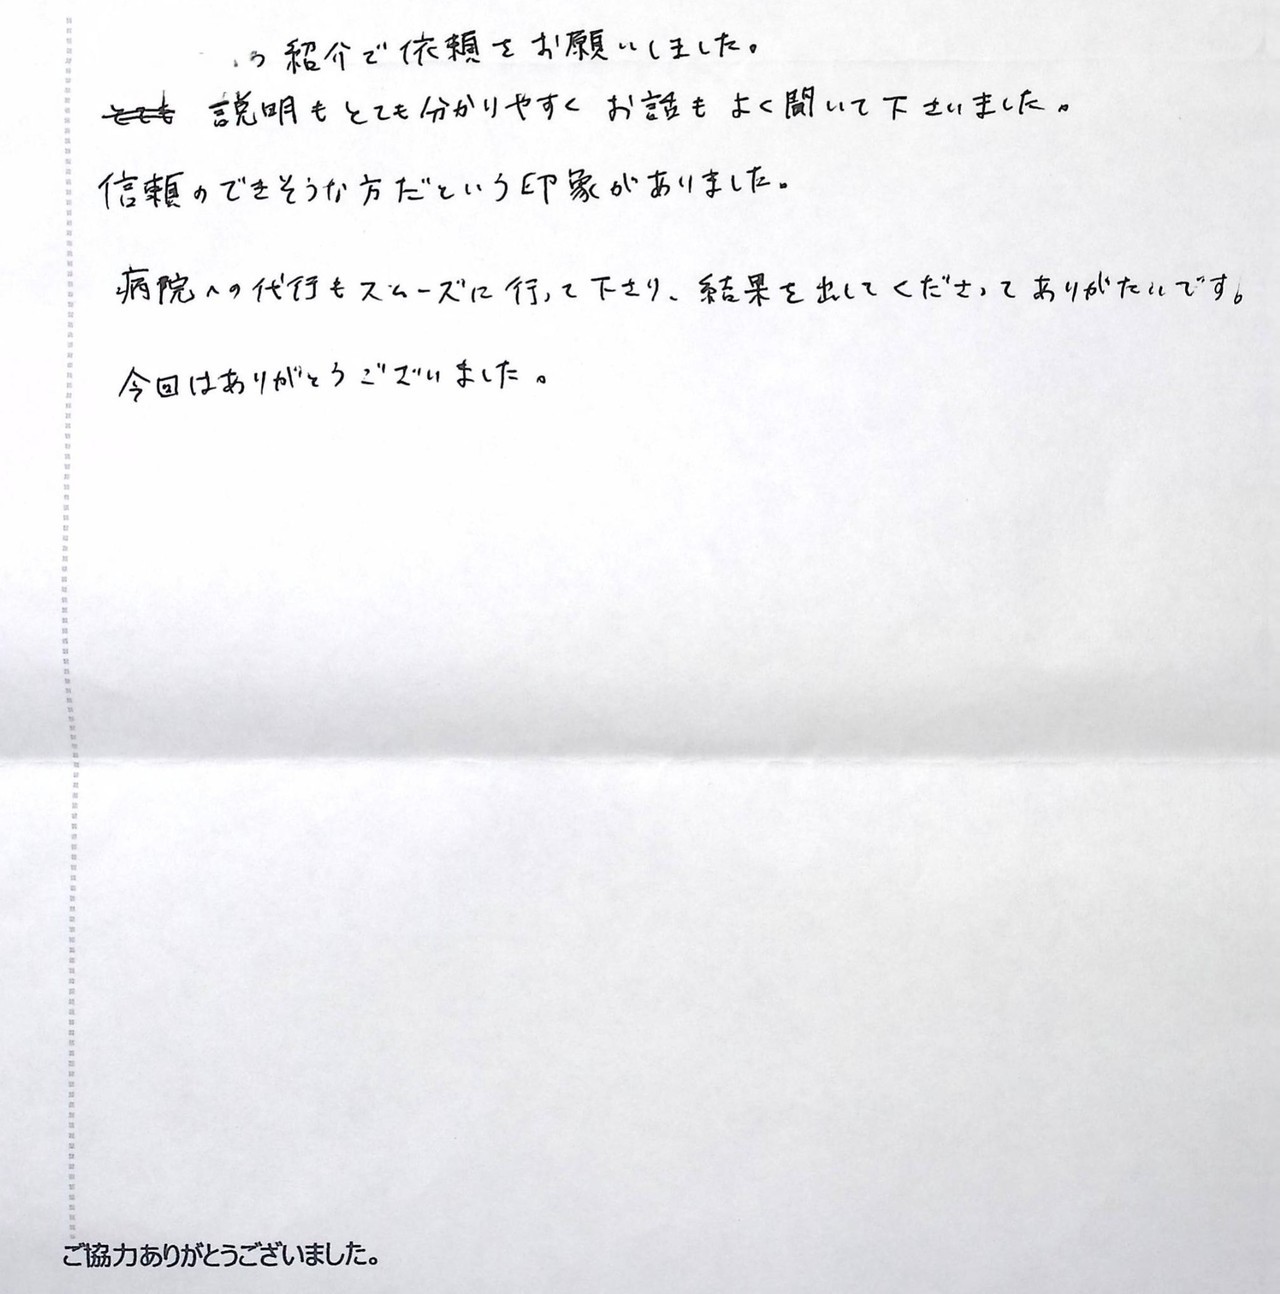 の紹介で依頼をお願いしました。
とても 説明もとても分かりやすく お話も よく聞いて下さいました。
信頼のできそうな方だという印象がありました。
病院への代行もスムーズに行って下さり、結果を出してくださってありがたいです。
今回はありがとうございました。
ご協力ありがとうございました。